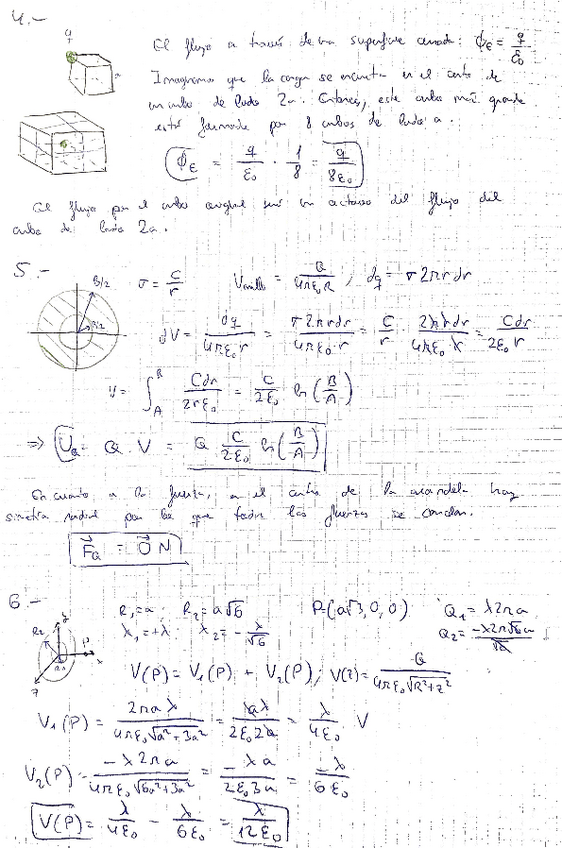 4.-
q
El flujo a través de una superficie cerrada: ϕ_E = q/ε₀
Imaginamos que la carga se encuentra en el centro de
un cubo de lado 2a. Entonces, este cubo más grande
está formado por 8 cubos de lado a.
ϕ_E = q/ε₀ · 1/8 = q/8ε₀
El flujo por el cubo original será un octavo del flujo del
cubo de lado 2a.
5.-
B/2
σ = C/r V_anillo = Q/4πε₀R ; dq = σ2πrdr
dV = dq/4πε₀r = σ2πrdr/4πε₀·r = C/r · 2πrdr/4πε₀r = Cdr/2ε₀r
V = ∫_A^B Cdr/2rε₀ = C/2ε₀ ln(B/A)
⇒ U_Q = Q·V = Q C/2ε₀ ln(B/A)
En cuanto a la fuerza, en el centro de la arandela hay
simetría radial por lo que todas las fuerzas se cancelan.
F⃗_Q = 0⃗ N
6.-
R₁=a R₂=a√6 P=(a√3,0,0) Q₁ = λ2πa
λ₁=+λ λ₂=-λ/√6 Q₂= -λ2π√6a/√6
R₂ y P x z
V(P) = V₁(P) + V₂(P); V(z) = Q/4πε₀√R²+z²
V₁(P) = 2πaλ/4πε₀√a²+3a² = λa/2ε₀2a = λ/4ε₀ V
V₂(P) = -λ2πa/4πε₀√6a²+3a² = -λa/2ε₀3a = -λ/6ε₀
V(P) = λ/4ε₀ - λ/6ε₀ = λ/12ε₀